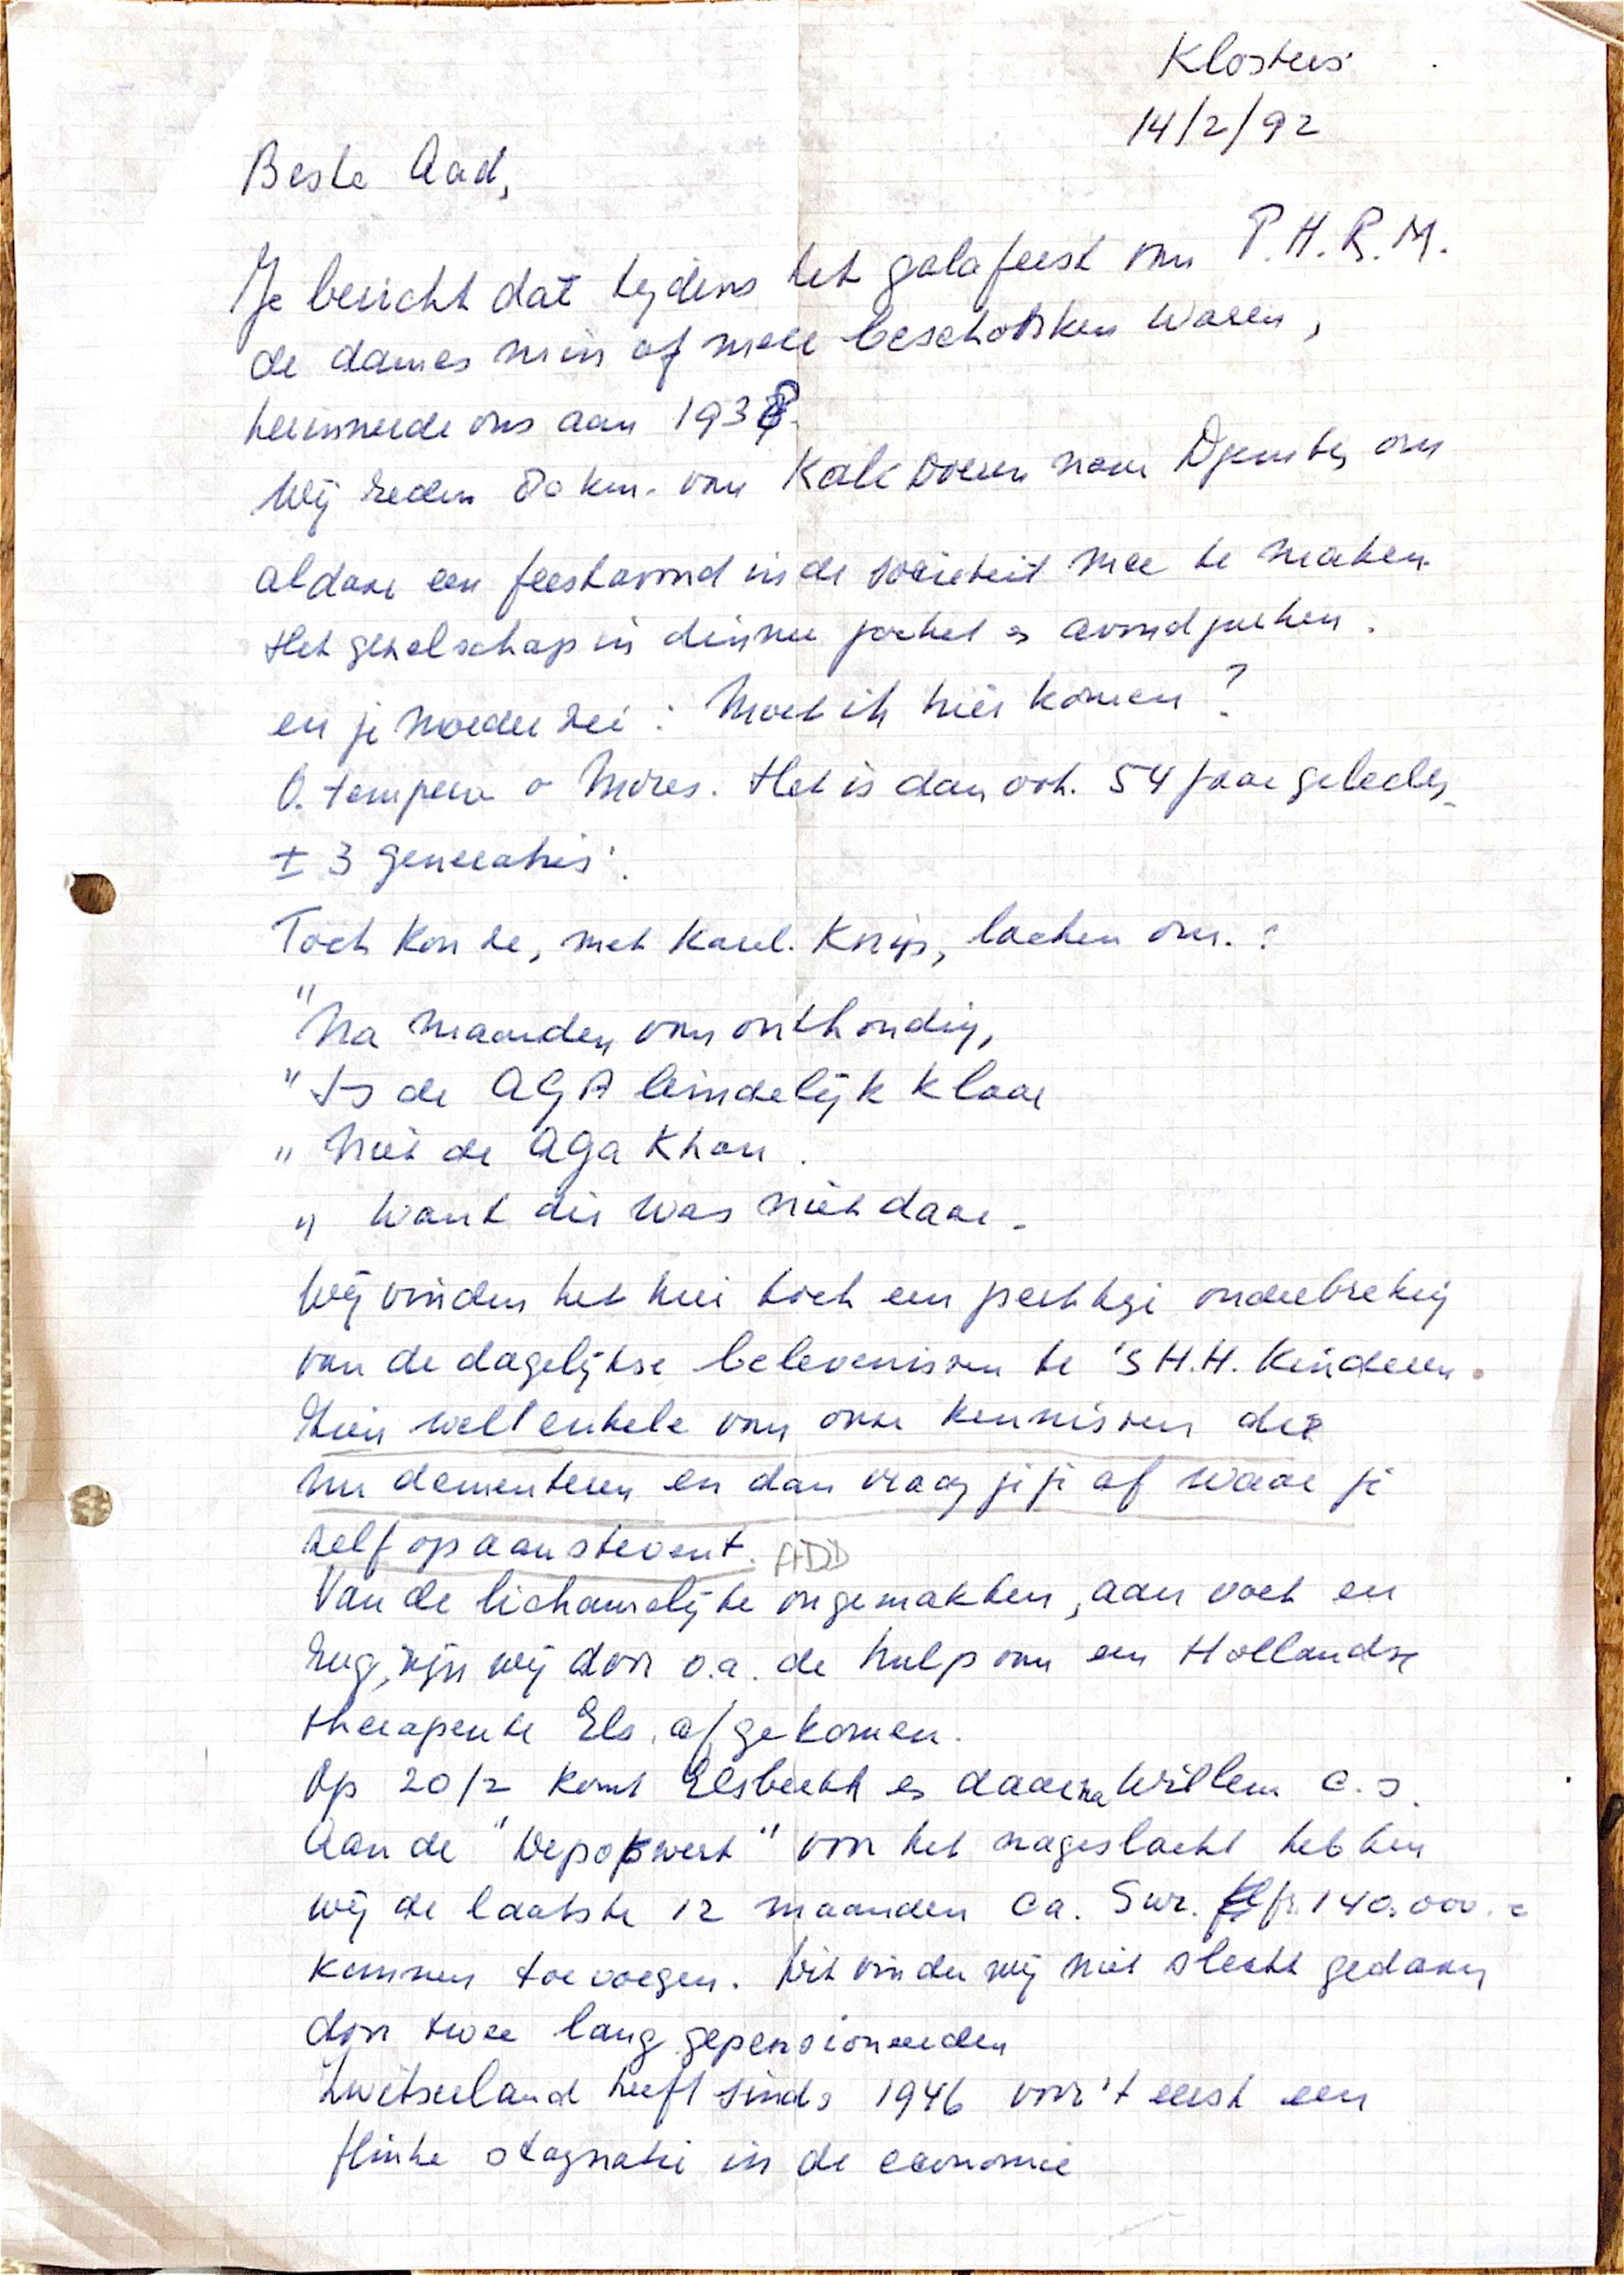 Klosters
14/2/92
Beste Aad,
Je bericht dat tijdens het galafeest van P.H.R.M.
de dames min of meer beschonken waren,
herinnerde ons aan 1938.
Wij reden 80 km. van Kali Doeren naar Djember om
aldaar een feestavond in de societeit mee te maken.
Het gezelschap in dinner jacket en avondjurken.
en je moeder zei: Moet ik hier komen?
O. tempora o Mores. Het is dan ook. 54 jaar geleden
± 3 generaties.
Toch kon ze, met Karel. Knip, lachen om.:
"Na maanden van onthouding,
" Is de AGA eindelijk klaar
" Niet de Aga Khan.
" Want die was niet daar.
Wij vinden het hier toch een prettige onderbreking
van de dagelijkse belevenissen te 's H.H. Kinderen.
Zien wel enkele van onze kennissen die
nu dementeren en dan vraag je je af waar je
zelf op aanstevent. ADD
Van de lichamelijke ongemakken, aan voet en
rug, zijn wij door o.a. de hulp van een Hollandse
therapeute Els. afgekomen.
Op 20/2 komt Elsbeth en daarna Willem c.s.
Aan de "Depotwert" voor het nageslacht hebben
wij de laatste 12 maanden ca. Swr. fr. 140.000.=
kunnen toevoegen. Dit vinden wij niet slecht gedaan
door twee lang gepensioneerden
Zwitserland heeft sinds 1946 voor 't eerst een
flinke stagnatie in de economie